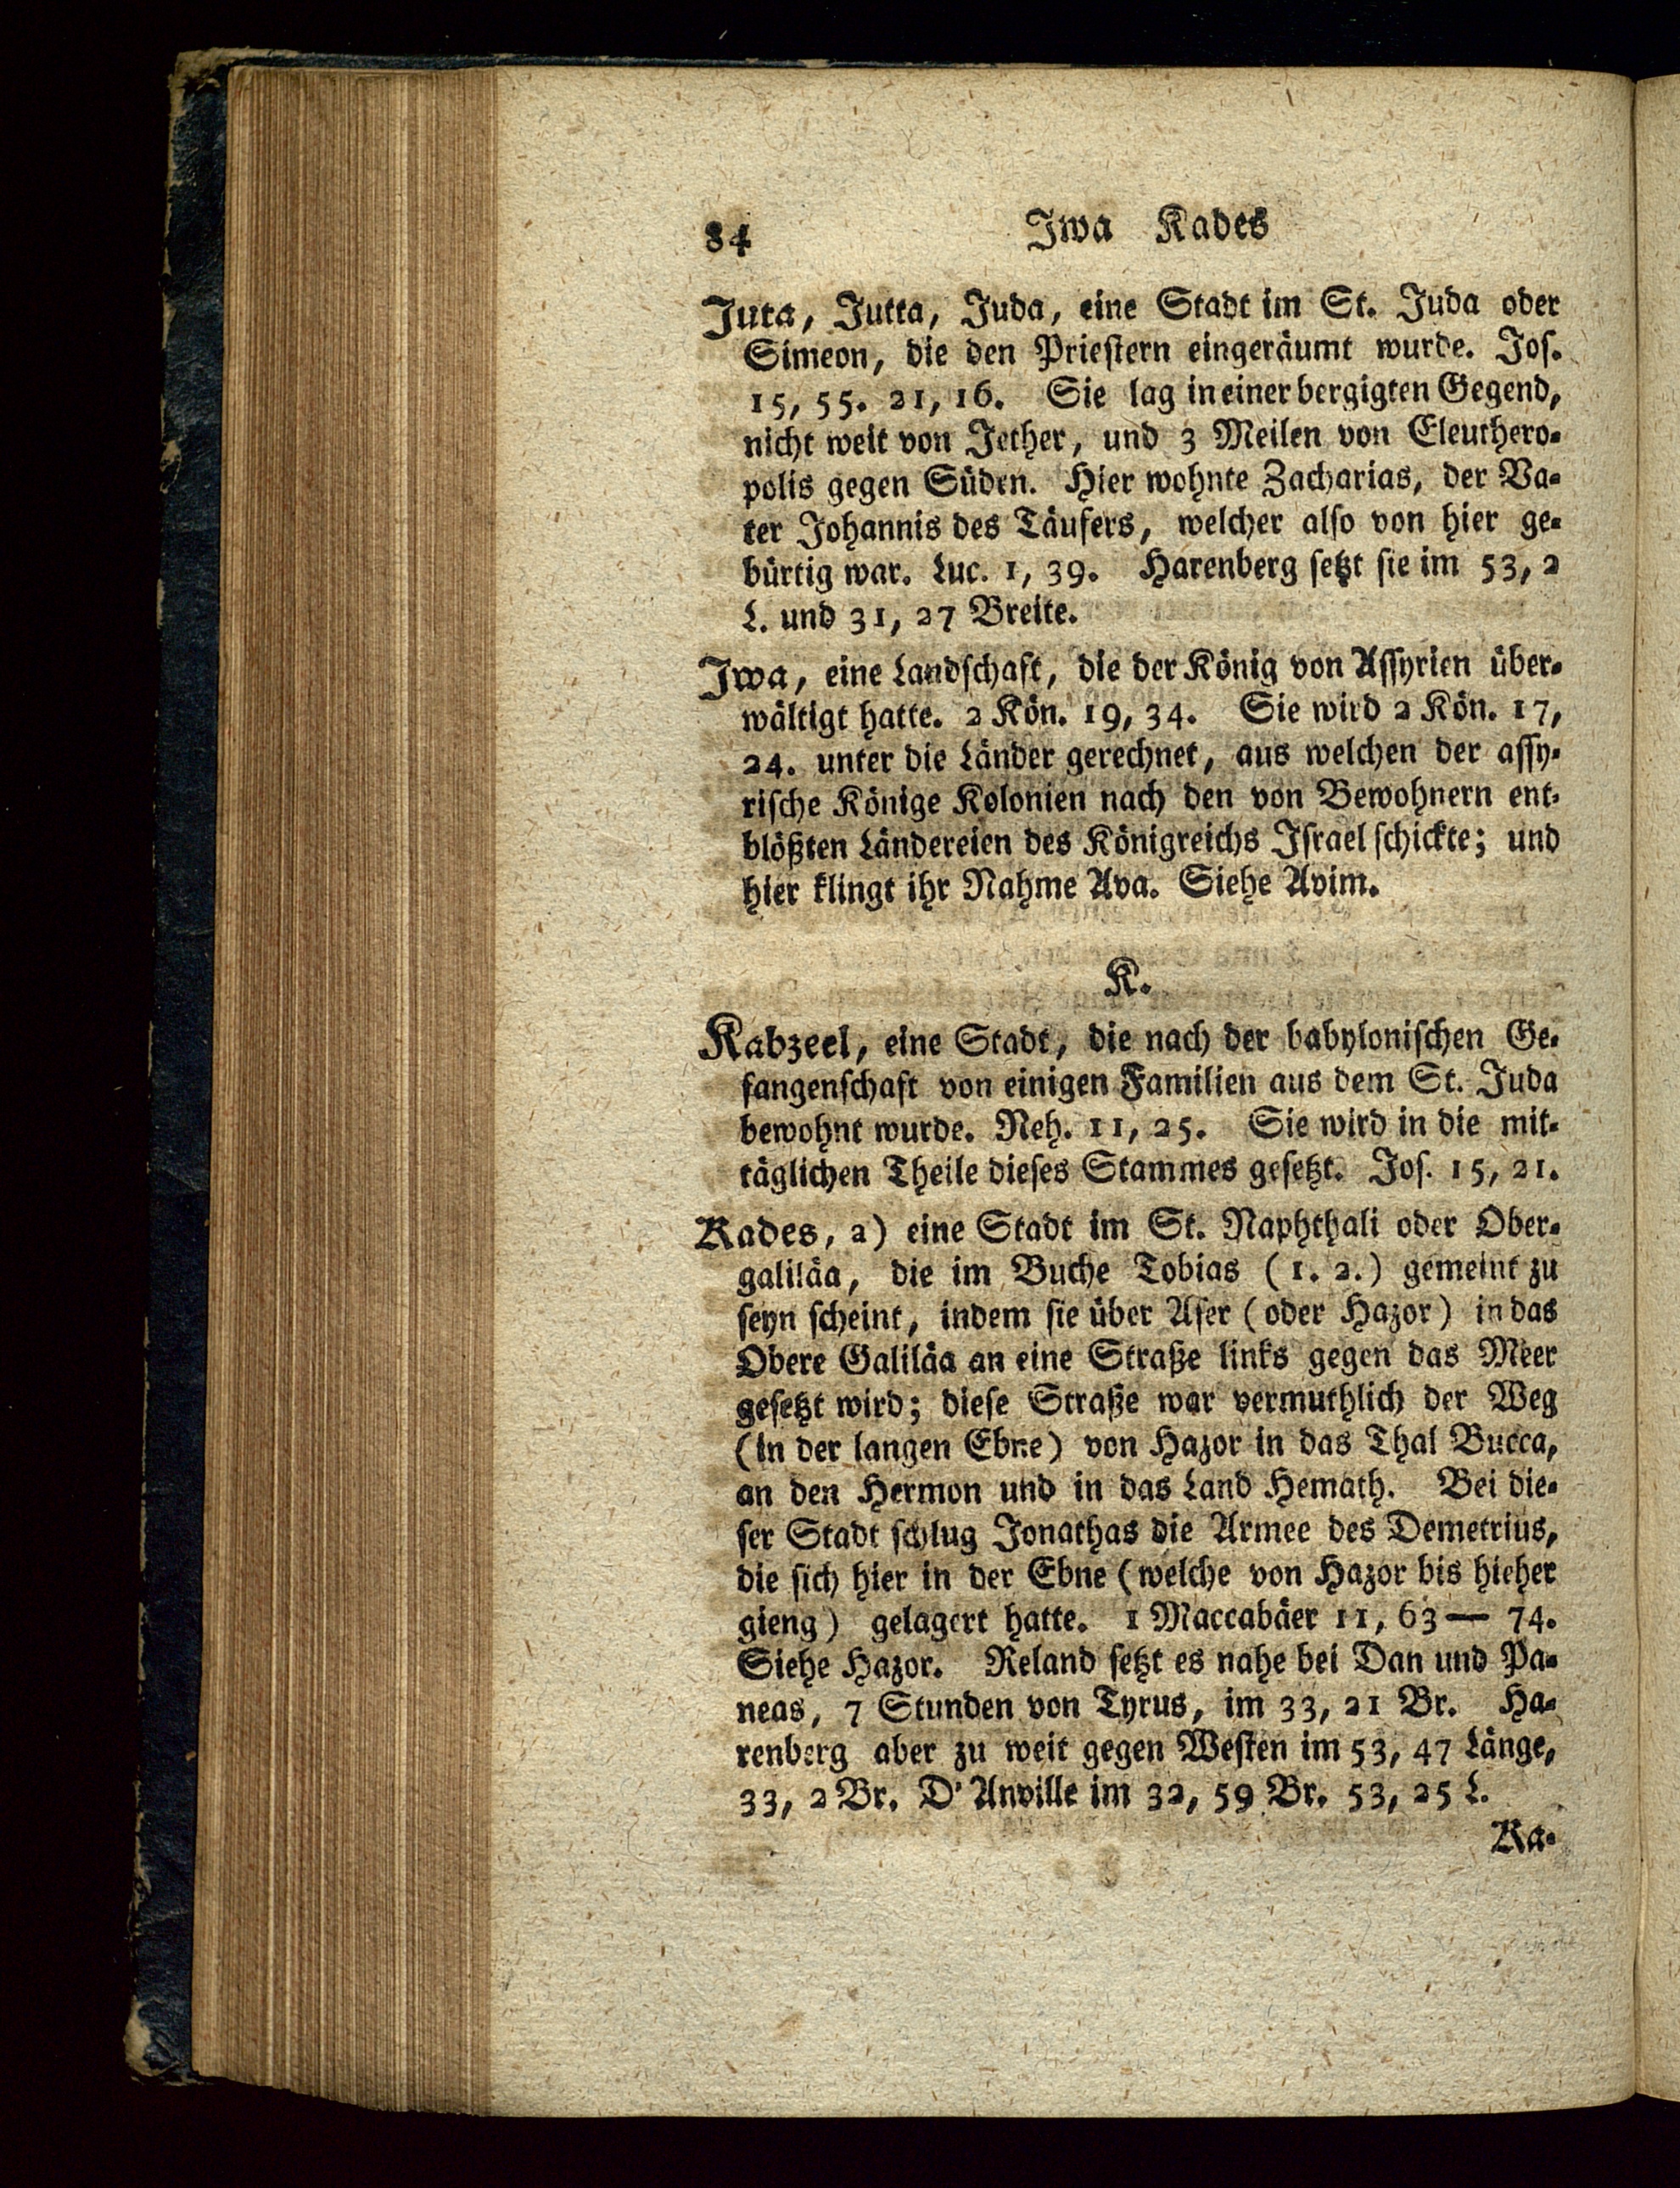 84 Jwa Kades
Juta, Jutta, Juda, eine Stadt im St. Juda oder
Simeon, die den Priestern eingeräumt wurde. Jos.
15, 55. 21, 16. Sie lag in einer bergigten Gegend,
nicht weit von Jether, und 3 Meilen von Eleuthero-
polis gegen Süden. Hier wohnte Zacharias, der Va-
ter Johannis des Täufers, welcher also von hier ge-
bürtig war. Luc. 1, 39. Harenberg setzt sie im 53, 2
L. und 31, 27 Breite.
Jwa, eine Landschaft, die der König von Assyrien über-
wältigt hatte. 2 Kön. 19, 34. Sie wird 2 Kön. 17,
24. unter die Länder gerechnet, aus welchen der assy-
rische Könige Kolonien nach den von Bewohnern ent-
blößten Ländereien des Königreichs Israel schickte; und
hier klingt ihr Nahme Ava. Siehe Avim.
K.
Kabzeel, eine Stadt, die nach der babylonischen Ge-
fangenschaft von einigen Familien aus dem St. Juda
bewohnt wurde. Neh. 11, 25. Sie wird in die mit-
täglichen Theile dieses Stammes gesetzt. Jos. 15, 21.
Kades, a) eine Stadt im St. Naphthali oder Ober-
galiläa, die im Buche Tobias (1. 2.) gemeint zu
seyn scheint, indem sie über Aser (oder Hazor) in das
Obere Galiläa an eine Straße links gegen das Meer
gesetzt wird; diese Straße war vermuthlich der Weg
(in der langen Ebne) von Hazor in das Thal Bucca,
an den Hermon und in das Land Hemath. Bei die-
ser Stadt schlug Jonathas die Armee des Demetrius,
die sich hier in der Ebne (welche von Hazor bis hieher
gieng) gelagert hatte. 1 Maccabäer 11, 63 — 74.
Siehe Hazor. Reland setzt es nahe bei Dan und Pa-
neas, 7 Stunden von Tyrus, im 33, 21 Br. Ha-
renberg aber zu weit gegen Westen im 53, 47 Länge,
33, 2 Br. D'Anville im 32, 59 Br. 53, 25 L.
Ka-